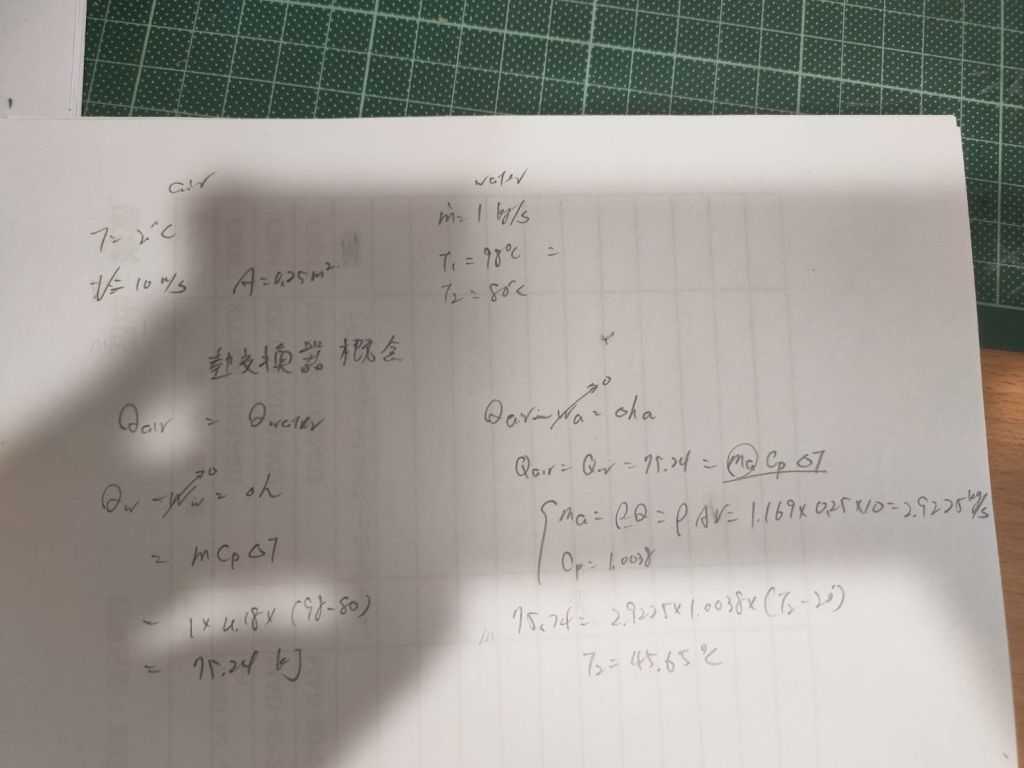 air
T = 20°C
V = 10 m/s A = 0.25 m²
water
ṁ = 1 kg/s
T₁ = 98°C =
T₂ = 80°C
熱交換器概念
Qair = Qwater
Qw - Ww→0 = Δh
= m Cp ΔT
= 1 × 4.18 × (98-80)
= 75.24 kJ
Qair - Wa→0 = Δha
Qair = Qw = 75.24 = ma Cp ΔT
ma = ρQ = ρAV = 1.169 × 0.25 × 10 = 2.9225 kg/s
Cp = 1.0038
75.24 = 2.9225 × 1.0038 × (T₂ - 20)
T₂ = 45.65 °C